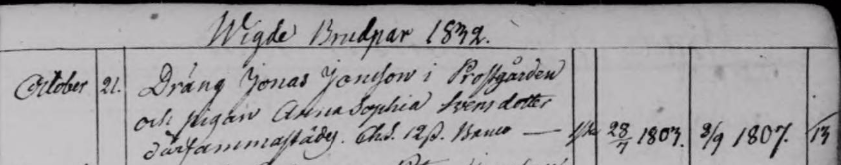 Wigde Brudpar 1832.
October 21. Dräng Jonas Jonsson i Prostgården
och pigan Anna Sophia Svensdotter
därsammastädes. 12 ß. Banco — 28/7 1803. 8/9 1807. 1/13